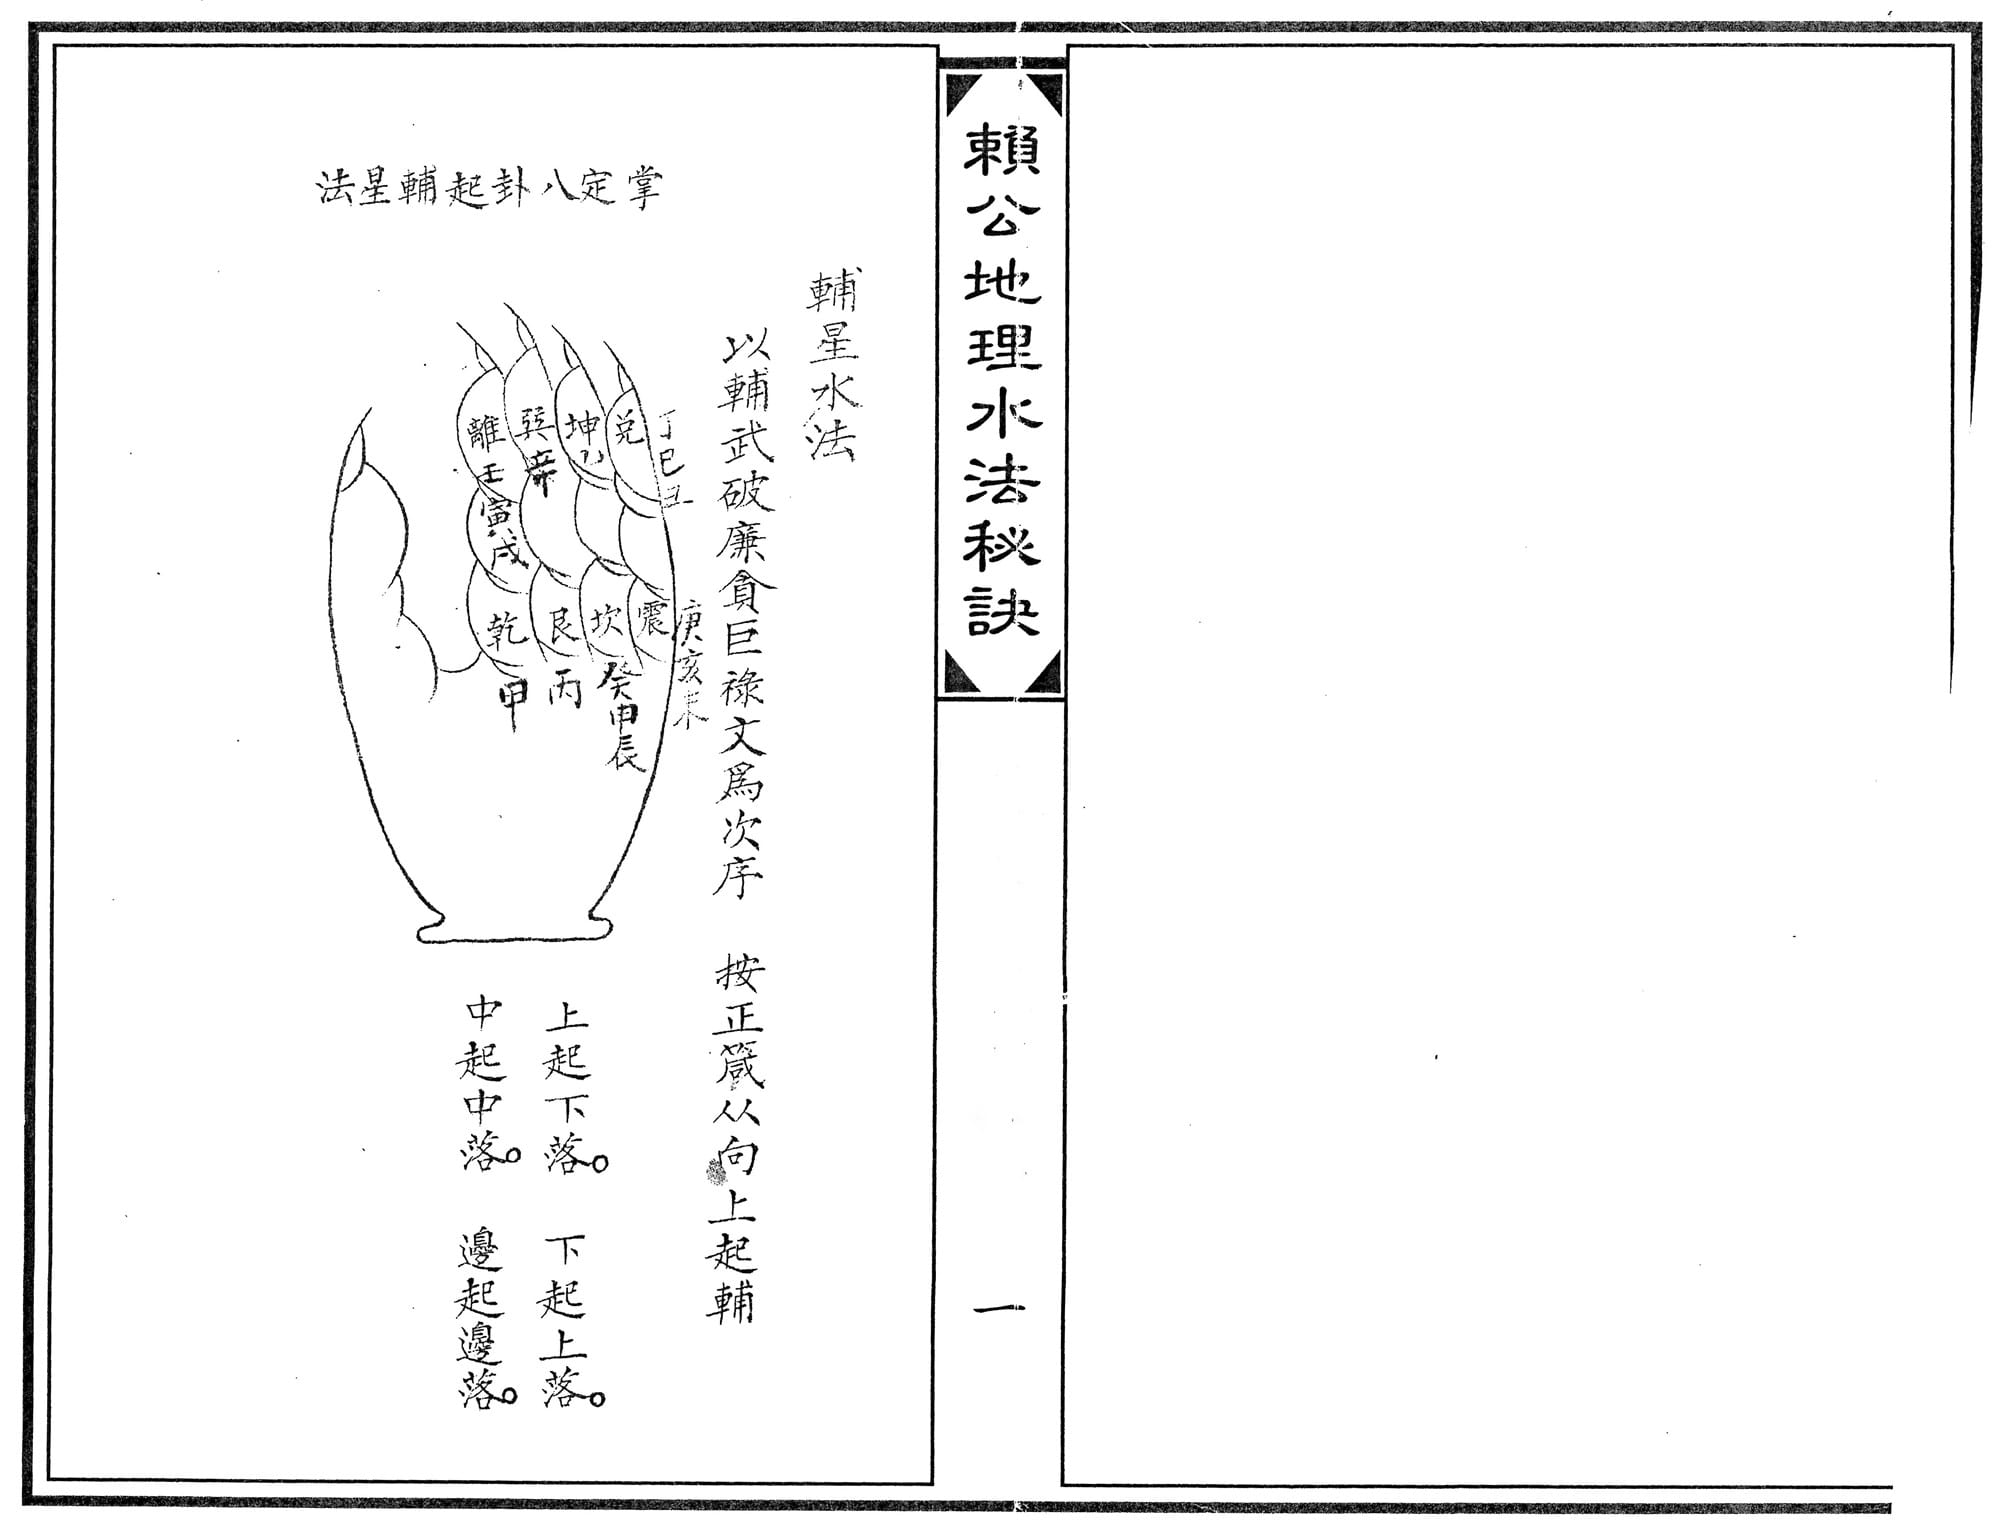 賴公地理水法秘訣
一
掌定八卦起輔星法
輔星水法
以輔武破廉貪巨祿文爲次序 按正箴从向上起輔
兌 丁巳丑
坤乙
巽辛
離壬寅戌
震 庚亥未
坎癸申辰
艮丙
乾甲
上起下落。 下起上落。
中起中落。 邊起邊落。